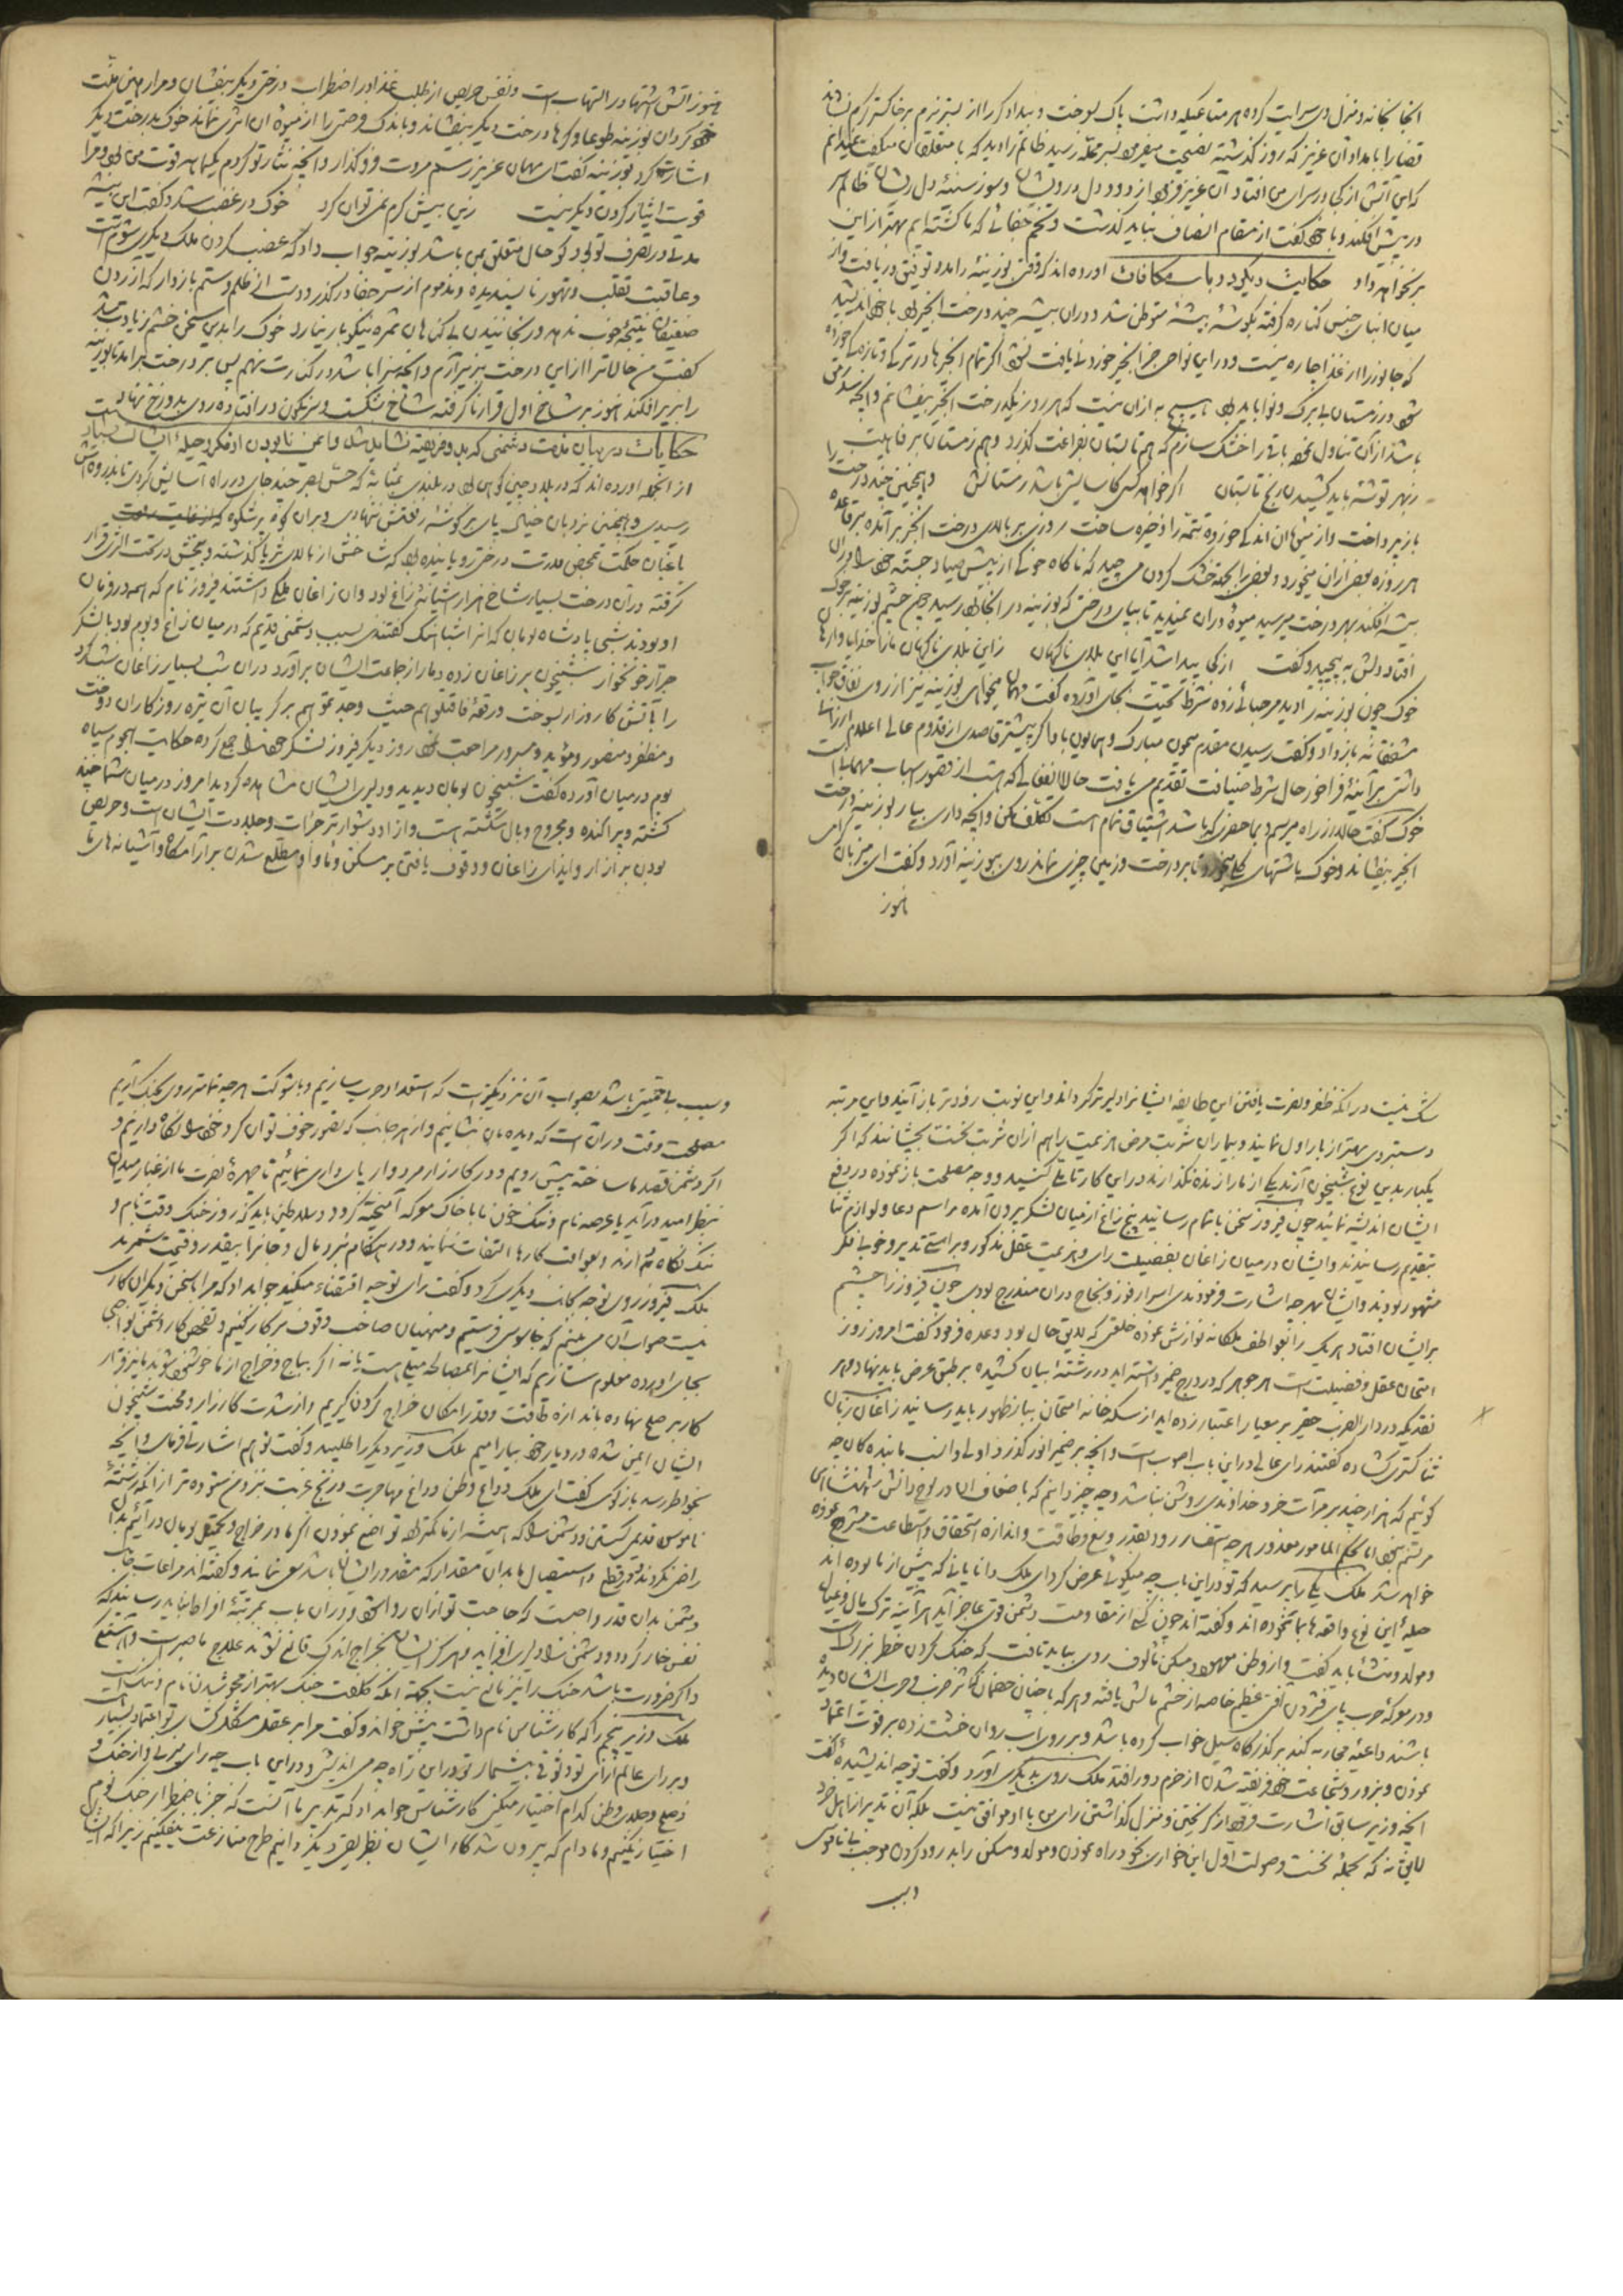 انجا بخانه و منزل وی سرایت کرده هر متاعیکه داشت پاک بسوخت و بیدادگر را از بستر نرم بر خاکستر گرم نشاند
قضا را بامداد آن عزیز که روز گذشته نصیحت میفرمود بسر محله رسید ظالم را دید که با متعلقان میگفت نمیدانم
که این آتش از کجا در سرای من افتاد آن عزیز فرمود از دود دل درویشان و سوز سینهٔ دل ریشان ظالم سر
در پیش افکند و با خود گفت از مقام انصاف نباید گذشت و تخم جفائی که ما کشته ایم بهتر از این
بر نخواهد داد حکایت دیگر در باب مکافات اورده اند که وقتی بوزینهٔ را مدد توفیق دریافت و از
میان ابنای جنس کناره گرفته بگوشهٔ بیشهٔ متوطن شد و در ان بیشه چند درخت انجیر بود با خود اندیشید
که جانور را از غذا چاره نیست و در این نواحی جز انجیر خوردنی یافت نشود اگر تمام انجیرها در تری و تازگی خورده
شود در زمستان بی برگ و نوا باید بود هیچ به از ان نیست که هر روز یکدرخت انجیر بیفشانم و انچه
باشد از ان تناول نموده باقی را خشک سازم که هم تابستان بفراغت گذرد و هم زمستان برفاهیت
ز بهر توشه باید کشیدن رنج تابستان اگر خواهد کسی کاسایش باشد زمستانش و همچنین چند درخت را
باز پرداخت و از میوه ان اندکی خورده تتمه را ذخیره ساخت روزی بر بالای درخت انجیر بر آمده بر قاعده
هر روزه بعضی از ان میخورد و بعضی را بجهة خشک کردن می چید که ناگاه خوکی از پیش صیاد جسته خود را در ان
بیشه افکند بهر درخت میرسید میوهٔ در ان نمیدید تا بپای درختی که بوزینه در انجا بود رسید چون چشم بوزینه بر خوک
افتاد دلش به پیچید و گفت از کی پیدا شد آیا این بلای ناگهان زاین بلای ناگهان ما را خدایا وارهان
خوک چون بوزینه را دید مرحبائی زده شرط تحیت بجای آورده گفت مهمان میخواهی بوزینه نیز از روی نفاق جواب
مشفقانه باز داد و گفت رسیدن مقدم میمون مبارک و همایون باد اگر پیشتر قاصدی از قدوم عالی اعلام ارزانی
داشتی هر آینه فراخور حال شرط ضیافت تقدیم می یافت حالا انفعالی که هست از قصور اسباب مهمانیست
خوک گفت حالا از راه میرسیم و بما حضری که باشد اشتیاق تمام است تکلف مکن و انچه داری بیار بوزینه درخت
انجیر بیفشاند و خوک باشتهای کلی میخورد تا بر درخت و زمین چیزی نماند روی ببوزینه آورد و گفت ای میزبان گرامی
هنوز
هنوز آتش اشتها در التهاب است و نفس حریص از طلب غذا در اضطراب درختی دیگر بیفشان و مرا رهین منت
خود گردان بوزینه طوعا و کرها درخت دیگر بیفشاند و باندک فرصتی را از میوهٔ ان اثری نماند خوک بدرخت دیگر
اشارت کرد بوزینه گفت ای مهمان عزیز رسم مروت فرو گذار و انچه نثار تو کردم یکماهه قوت من بود و مرا
قوت ایثار کردن دیگر نیست زین بیش کرم نمی توان کرد خوک در غضب شد و گفت این بیشه
مدتی در تصرف تو بود گو حال متعلق بمن باشد بوزینه جواب داد که غصب کردن ملک دیگری شوم است
و عاقبت تغلب و تهور ناپسندیده و مذموم از سر جفا در گذر و دست از ظلم و ستم باز دار که آزردن
ضعیفان نتیجهٔ خوب ندهد و رنجانیدن بی گناهان ثمره نیکو بار نیارد خوک را بدین سخن خشم زیادت شد
گفت من حالا ترا از این درخت بزیر آرم و انچه سزا باشد در کنارت نهم پس بر درخت برامد تا بوزینه
را بزیر افکند هنوز بر شاخ اول قرار نا گرفته شاخ بشکست و سرنگون در افتاده روی بدوزخ نهاد
حکایات در بیان مذمت دشمنی که بد و فریفته نشاید شد و ایمن نا بودن از مکر و حیلهٔ ایشان بسیار است
از انجمله اورده اند که در بلاد چین کوهی بود در بلندی بمثابه که حس بصر چند جای در راه آسایش کردی تا بذروه اش
رسیدی و همچنین نردبان خیال پای بر گوشهٔ رفعتش ننهادی و بر ان کوه پرشکوه
باغبان حکمت بمحض قدرت درختی رویانیده بود که شاخش از بالای ثریا گذشته و بیخش در تحت الثری قرار
گرفته در آن درخت بسیار شاخ هزار اشیانهٔ زاغ بود و ان زاغان ملکی داشتند فیروز نام که همه در فرمان
او بودند شبی پادشاه بومان که انرا شباهنگ گفتندی بسبب دشمنی قدیم که در میان زاغ و بوم بود با لشکر
جرار خونخوار شبیخون بر زاغان زده دمار از جماعت ایشان برآورد در ان شب بسیار زاغان
را بآتش کارزار بسوخت ورقهٔ فاقتلوهم حیث وجدتموهم بر گریبان آن تیره روزگاران دوخت
و مظفر و منصور و مؤید و مسرور مراجعت نمود روز دیگر فیروز لشکر خود را جمع کرده حکایت هجوم سپاه
بوم در میان آورده گفت شبیخون بومان دیدید و دلیری ایشان مشاهده کردید امروز در میان شما چند
کشته و پراکنده و مجروح و بال شکسته است و از ان دشوارتر جرات و جلادت ایشان است و حریص
بودن بر ازار و ایذای زاغان و وقوف یافتن بر مسکن و ماوا و مطلع شدن بر آرامگاه و آشیانه های ما
شک نیست در انکه ظفر و نصرت یافتن این طایفه ایشانرا دلیر تر کرده اند و این نوبت زودتر باز آیند و این مرتبه
دستبردی بهتر از بار اول نمایند و بیماران شربت مرض هزیمت را هم از ان شربت نخست بچشانند که اگر
یکبار بدین نوع شبیخون آرند یکی از ما را زنده نگذارند در این کار تاملی کنید و وجه مصلحت باز نموده در دفع
ایشان اندیشه نمائید چون فیروز سخن باتمام رسانید پنج زاغ از میان لشکر بیرون آمده مراسم دعا و لوازم ثنا
بتقدیم رسانیدند و ایشان در میان زاغان بفضیلت رای و مزیت عقل مذکور و براستی تدبیر و خوبی فکر
مشهور بودند و ایشان بهر چه اشارت فرمودندی اسرار فوز و نجاح در ان مندرج بودی چون فیروز را چشم
بر ایشان افتاد هر یک را بعواطف ملکانه نوازش نموده خلعتی که لایق حال بود وعده فرمود گفت امروز روز
امتحان عقل و فضیلت است هر جوهر که در درج ضمیر داشته اید و در رشتهٔ بیان کشیده بر طبق عرض باید نهاد و هر
نقدیکه در دار الضرب حقیر بر معیار اعتبار زده اید از سکه خانه امتحان ببازار ظهور باید رسانید زاغان زبان
ثنا گستری گشاده گفتند رای عالی در این باب اصوب است و انچه بر ضمیر انور گذرد اولی و انسب ما بندگان چه
گوئیم که هزار چند بر مرآت خرد خداوندی روشن نباشد و چه چیز دانیم که باضعاف ان در لوح دانش شهنشاهی
مرتسم نبود اما بحکم المامور معذور هر چه استفسار رود بقدر وسع و طاقت و اندازه استحقاق و استطاعت مشروح نموده
خواهد شد ملک یکی را پرسید که تو در این باب چه میگوئی عرض کرد ای ملک دانایانی که پیش از ما بوده اند
حیلهٔ این نوع واقعه ها بما نموده اند و گفته اند چون کسی از مقاومت دشمن قوی عاجز آید هر آینه ترک مال و عیال
و مولد و منشا باید گفت و از وطن معهود و مسکن مالوف روی بباید تافت که جنگ کردن خطر بزرگ است
و در معرکه حرب پای فشردن آفتی عظیم خاصه از خصم مالش یافته و هر که با چنان خصمان که اثر ضرب و حرب ایشان دیده
باشند داعیهٔ محاربه کند بر گذرگاه سیل خواب کرده باشد و بر روی اب روان خشت زده بر قوت اعتماد
نمودن و بزور و شجاعت خود فریفته شدن از حزم دور افتد ملک روی بدیگری آورد و گفت تو چه اندیشیدهٔ گفت
انچه وزیر سابق اشارت فرمود از گریختن و منزل گذاشتن رای من با او موافق نیست بلکه آن تدبیر از اهل خرد
لایق نه که بحملهٔ نخست و صولت اول این خواری بخود راه نمودن و مولد و مسکن را بدرود کردن موجب بی ناموسی
و سبب
و سبب باشد بصواب آن نزدیکتر است که استعداد حرب سازیم و با شوکت هر چه تمامتر روی بجنگ آریم
مصلحت وقت در آن است که دیده بان بنشانیم و از هر جانب که تصور خوف توان کرد خود را نگاه داریم و
اگر دشمن قصد ما سا خته پیش رویم و در کارزار مردوار پای داری نمائیم تا چهرهٔ نصرت ما از غبار میدان
بنظر امید در آید یا عرصه نام و ننگ خون ما با خاک معرکه آمیخته گردد و سلاطین باید که روز جنگ وقت نام و
ننگ نگاه دارند و بعواقب کارها التفات ننمایند و در هنگام نبرد مال و جانرا بیقدر و قیمت شمرند
ملک فیروز روی توجه بجانب دیگری کرد و گفت رای تو چه اقتضاء میکند جواب داد که مرا با سخن دیگران کاری
نیست صواب آن می بینم که جاسوسی فرستیم و منهیان صاحب وقوف بر کار کنیم و تفحص کار دشمن بواجبی
بجای اورده معلوم سازیم که ایشانرا بمصالحه میلی هست یا نه اگر بباج و خراج از ما خوشنود شوند ما نیز قرار
کار بر صلح نهاده باندازه طاقت و قدر امکان خراج گردن گیریم و از شدت کارزار و محنت شبیخون
ایشان ایمن شده در دیار خود بیارامیم ملک وزیر دیگر را طلبید و گفت تو هم اشارتی فرمای و انچه
بخواطر رسد باز گوی گفت ای ملک وداع وطن و داغ مهاجرت و رنج غربت نزد من ستوده تر از انکه رشتهٔ
ناموس قدیم گسستن و دشمن را که همیشه از ما کمتر بود تواضع نمودن اگر ما در خراج و تحمیل بومان در آئیم بدان
راضی نگردند و در قطع و استیصال ما بدان مقدار که مقدور ایشان باشد سعی نمایند و گفته اند مراعات جانب
دشمن بدان قدر واجبست که حاجت تو از ان روا شود و در ان باب بمرتبهٔ افراط نباید رسانید که
نفس خار گردد و دشمن را دلیری افزاید و هرگز ایشان بخراج اندک قانع نشوند علاج ما صبرست
و اگر ضرورت باشد جنگ را نیز مانعی نیست بجهة انکه کلفت جنگ بهتر از محو شدن نام و ننگ است
ملک وزیر پنجم را که کارشناس نام داشت پیش خواند و گفت مرا بر عقل مشکل گشای تو اعتماد بسیار
و بر رای عالم آرای تو وثوق بیشمار تو در این راه چه می اندیشی و در این باب چه رای میزنی و از جنگ و
صلح و جلای وطن کدام اختیار میکنی کارشناس جواب داد که تدبیر ما آنست که جز باضطرار جنگ بوم
اختیار نکنیم و مادام که بیرون شد کار ایشان بطریق دیگر دانیم طرح منازعت نیفکنیم زیرا که ایشان